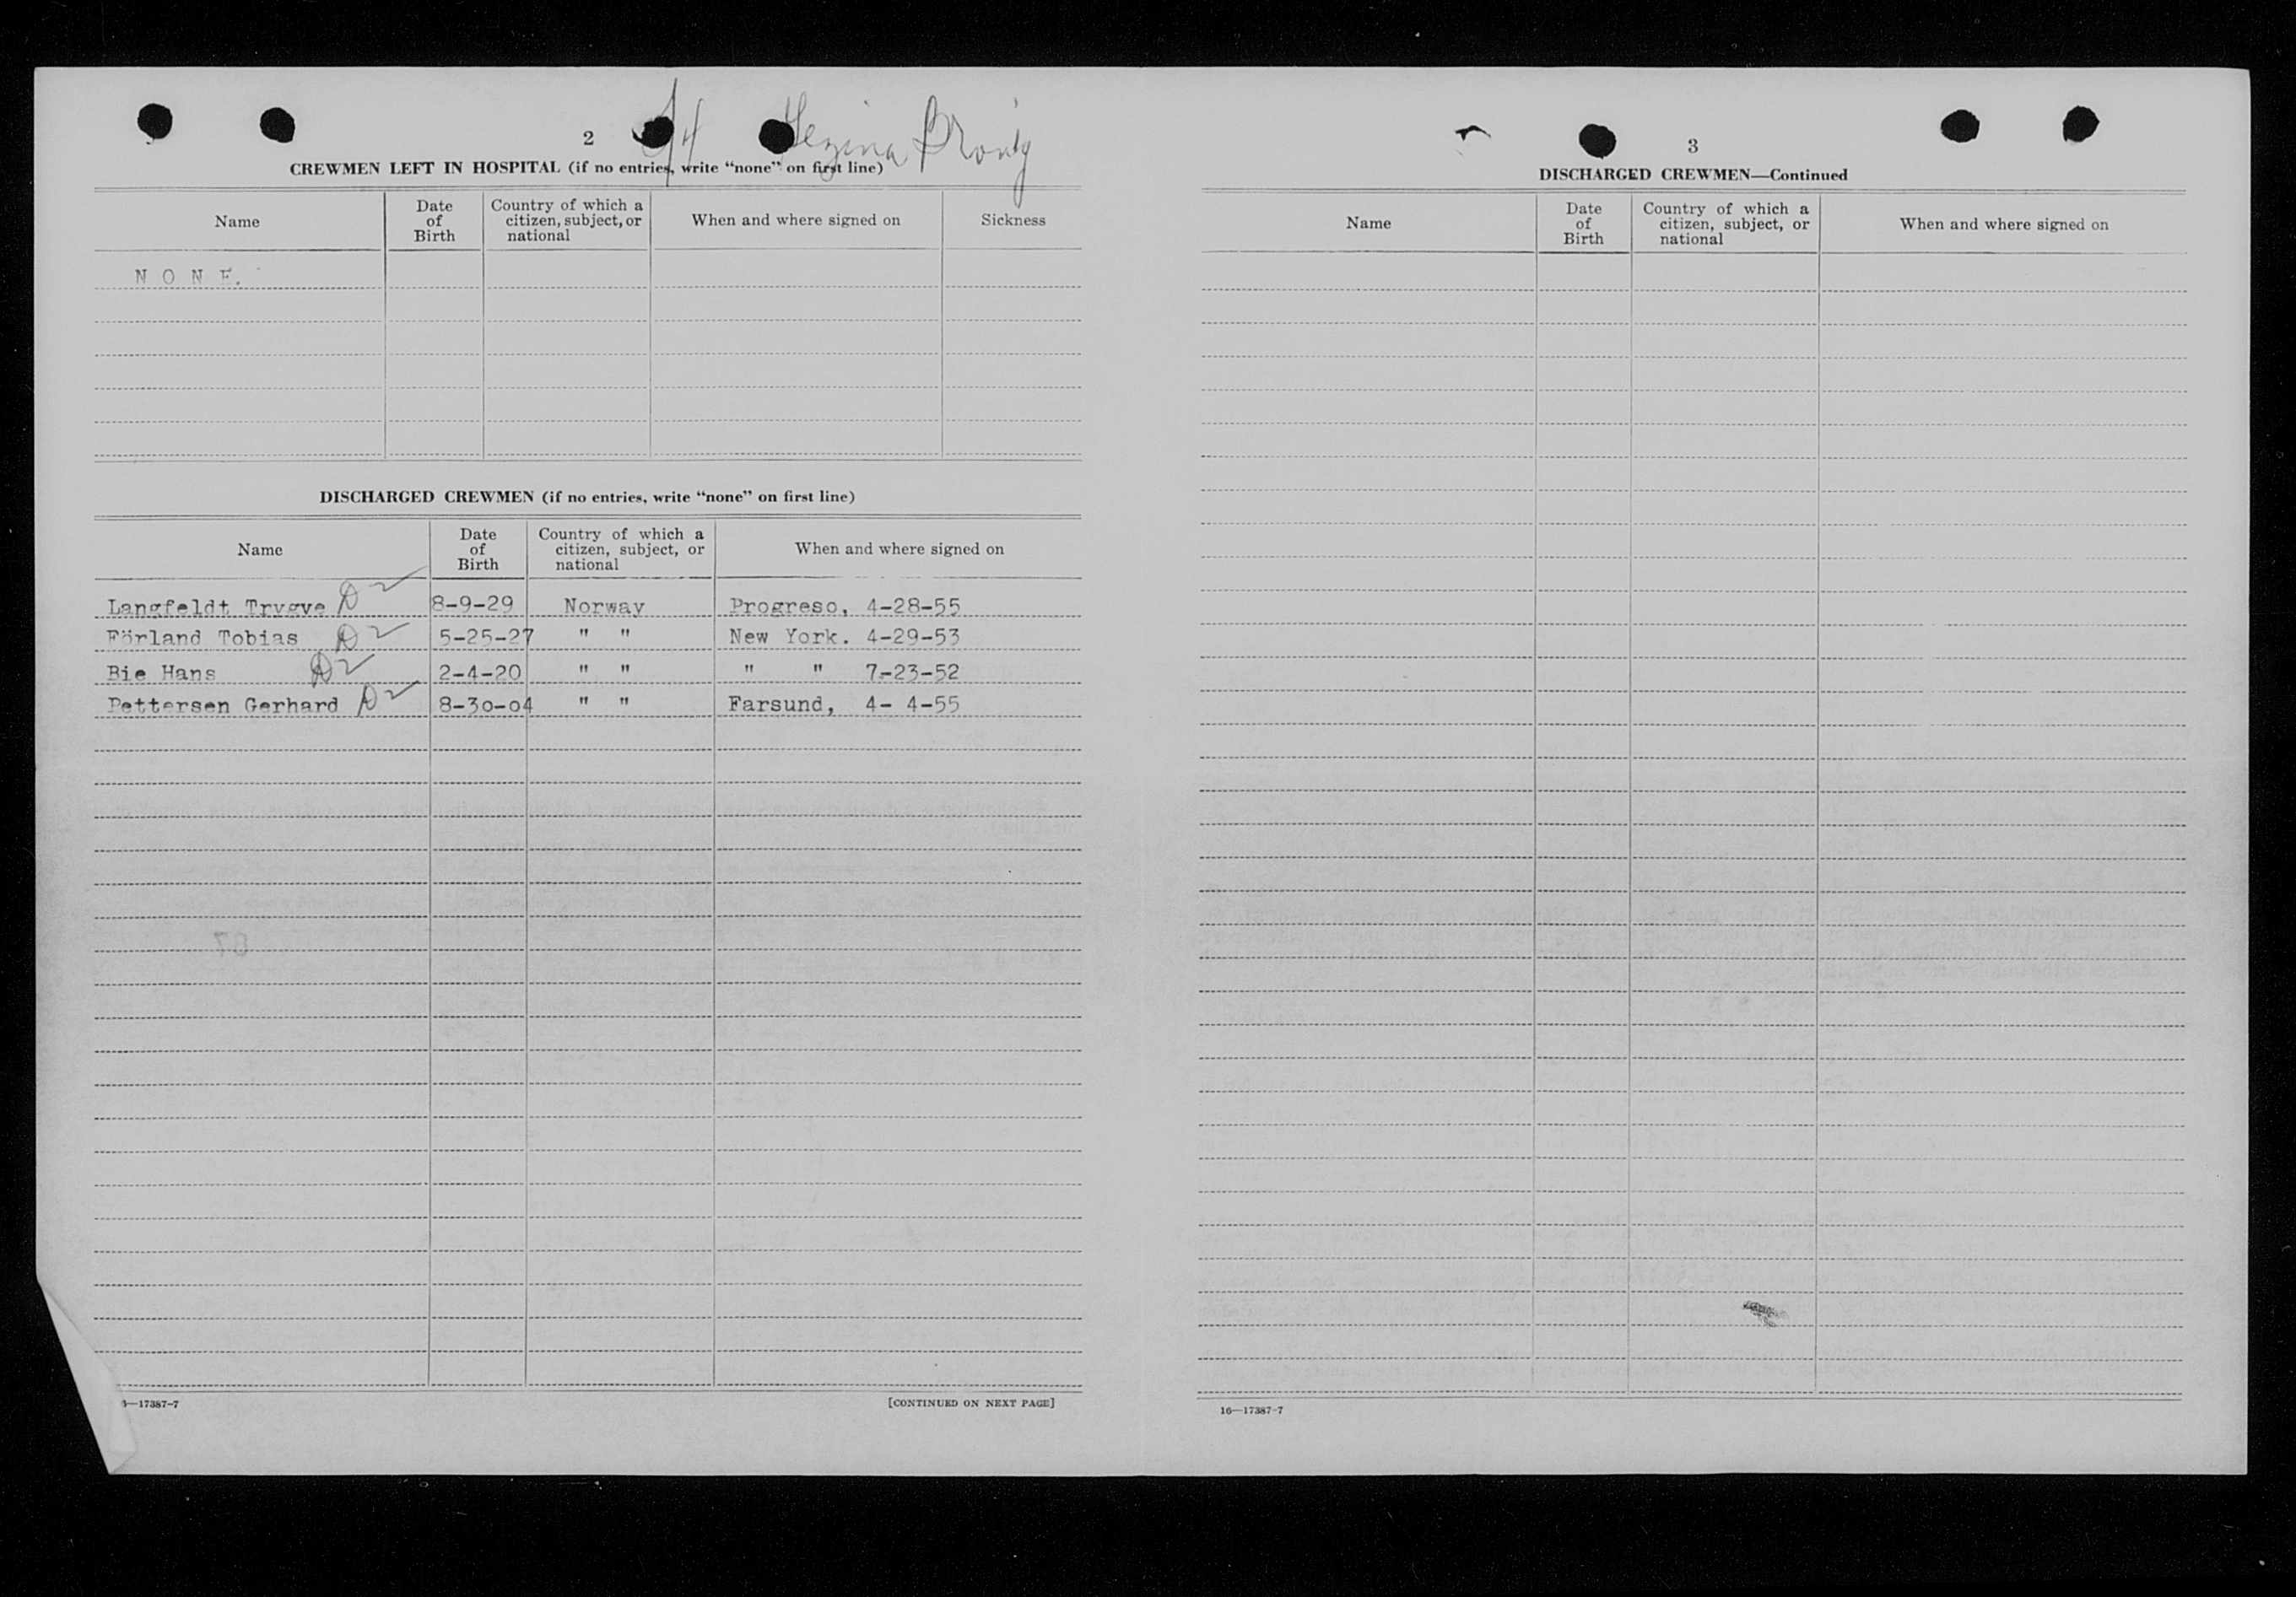 2
Gezina Brovig
CREWMEN LEFT IN HOSPITAL (if no entries, write “none” on first line)
Name
Date of Birth
Country of which a citizen, subject, or national
When and where signed on
Sickness
N O N E.
DISCHARGED CREWMEN (if no entries, write “none” on first line)
Name
Date of Birth
Country of which a citizen, subject, or national
When and where signed on
Langfeldt Trygve D2 8-9-29 Norway Progreso, 4-28-55
Förland Tobias D2 5-25-27 " " New York. 4-29-53
Bie Hans D2 2-4-20 " " " " 7-23-52
Pettersen Gerhard D2 8-30-04 " " Farsund, 4- 4-55
—17387-7
[CONTINUED ON NEXT PAGE]
3
DISCHARGED CREWMEN—Continued
Name
Date of Birth
Country of which a citizen, subject, or national
When and where signed on
16—17387-7